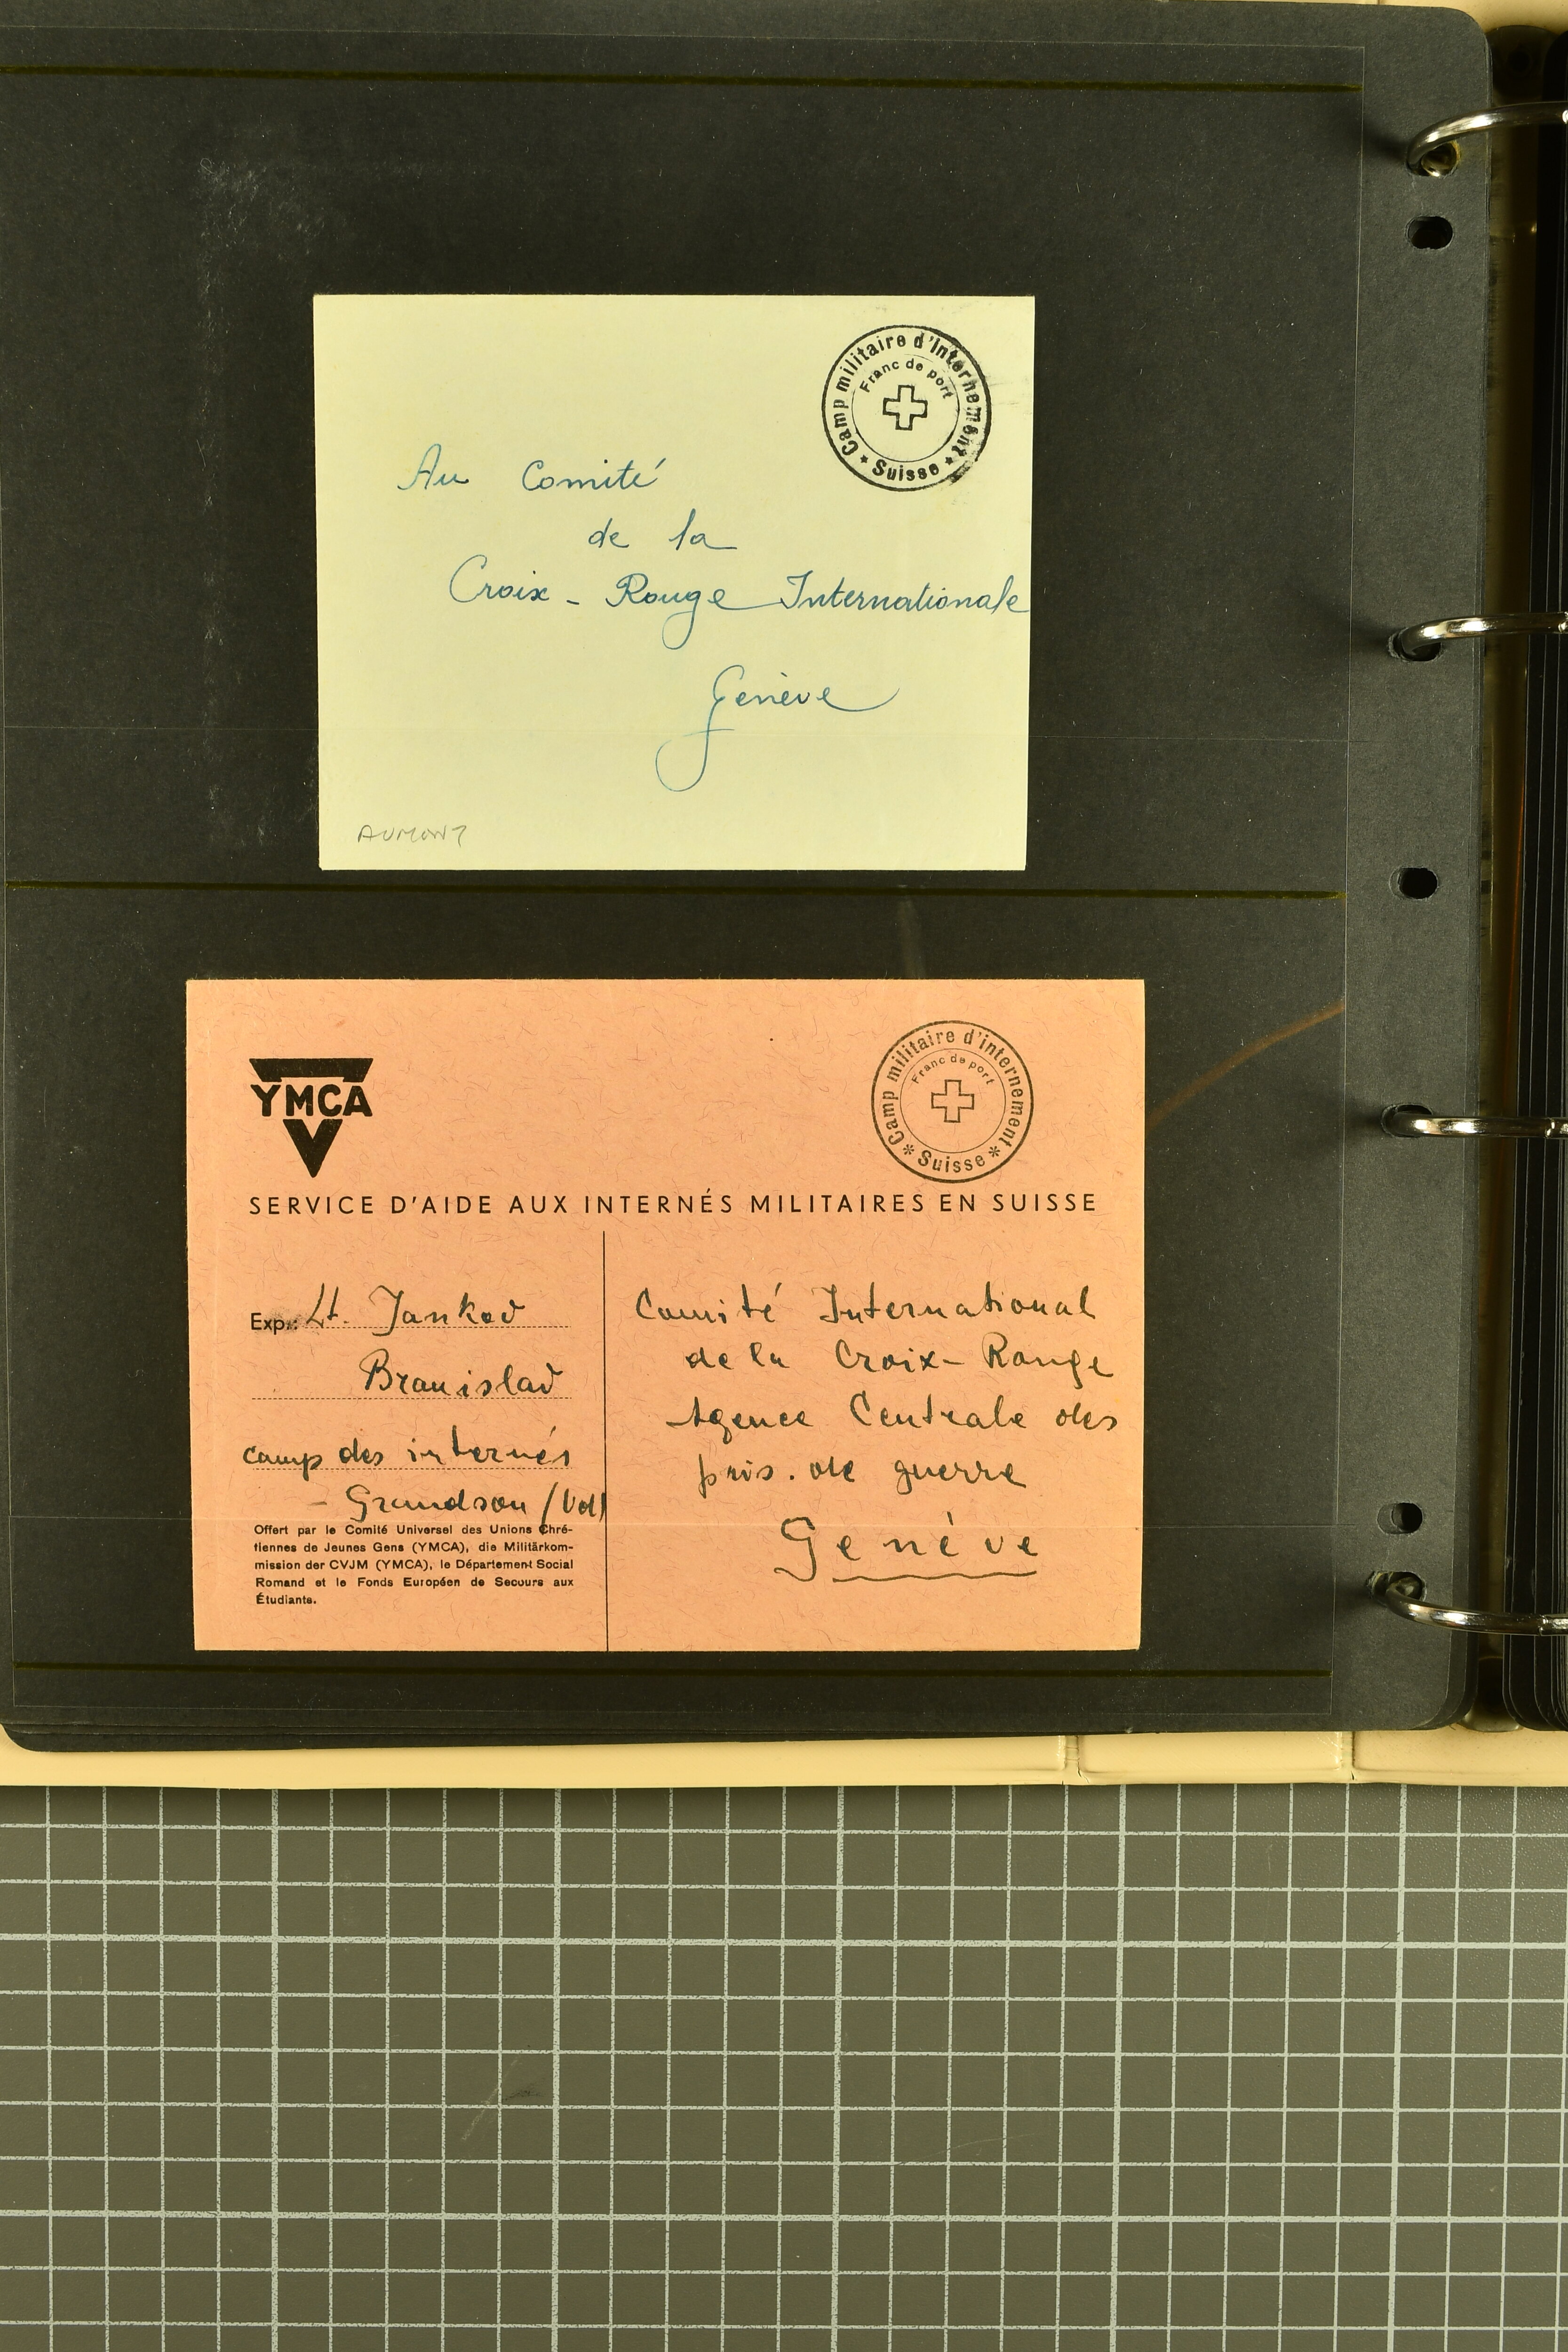 Camp militaire d'internement
Franc de port
Suisse
Au Comité
de la
Croix - Rouge Internationale
Genève
AUMONT
YMCA
Camp militaire d'internement
Franc de port
Suisse
SERVICE D'AIDE AUX INTERNÉS MILITAIRES EN SUISSE
Exp.: Lt. Jankov
Branislav
camp des internés
- Grandson (Vd)
Offert par le Comité Universel des Unions Chré-
tiennes de Jeunes Gens (YMCA), die Militärkom-
mission der CVJM (YMCA), le Département Social
Romand et le Fonds Européen de Secours aux
Étudiants.
Comité International
de la Croix-Rouge
Agence Centrale des
pris. de guerre
Genève